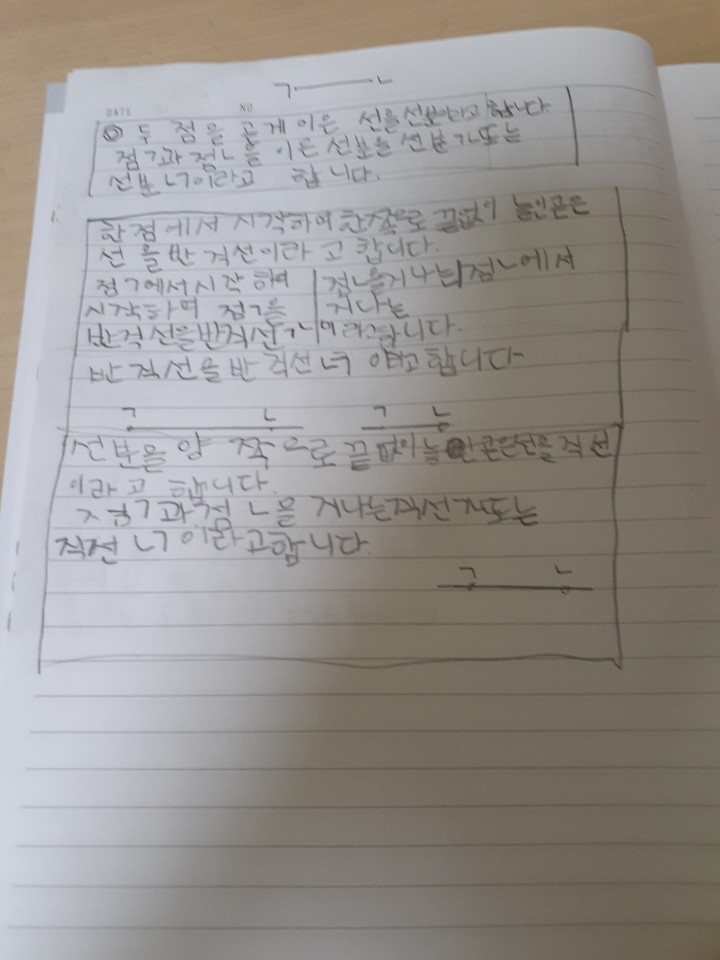 ㄱ ㄴ
DATE NO
◎ 두 점을 곧게 이은 선을 선분이라고 합니다.
점ㄱ과 점ㄴ을 이은 선분을 선분 ㄱㄴ또는
선분 ㄴㄱ이라고 합니다.
한점에서 시작하여 한쪽으로 끝없이 늘인곧은
선을 반직선이라고 합니다.
점ㄱ에서 시작하여 점ㄴ을지나는 점ㄴ에서
시작하며 점ㄱ을 지나는
반직선을반직선ㄱㄴ이라고합니다.
반직선을 반직선 ㄴㄱ 이라고합니다
ㄱ ㄴ ㄱ ㄴ
선분을 양쪽으로 끝없이 늘인 곧은선을 직선
이라고 합니다.
점ㄱ과 점ㄴ을 지나는직선 ㄱㄴ또는
직전 ㄴㄱ이라고합니다.
ㄱ ㄴ